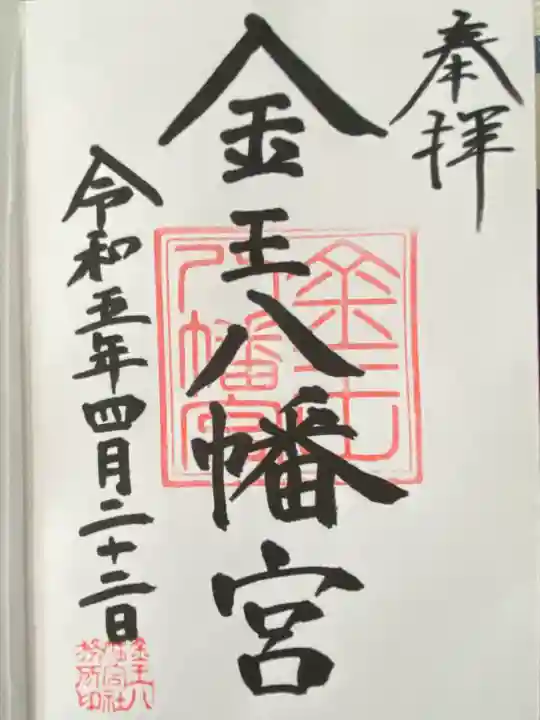 奉拝
金王八幡宮
金王八幡宮
令和五年四月二十二日
金王八幡宮社務所印